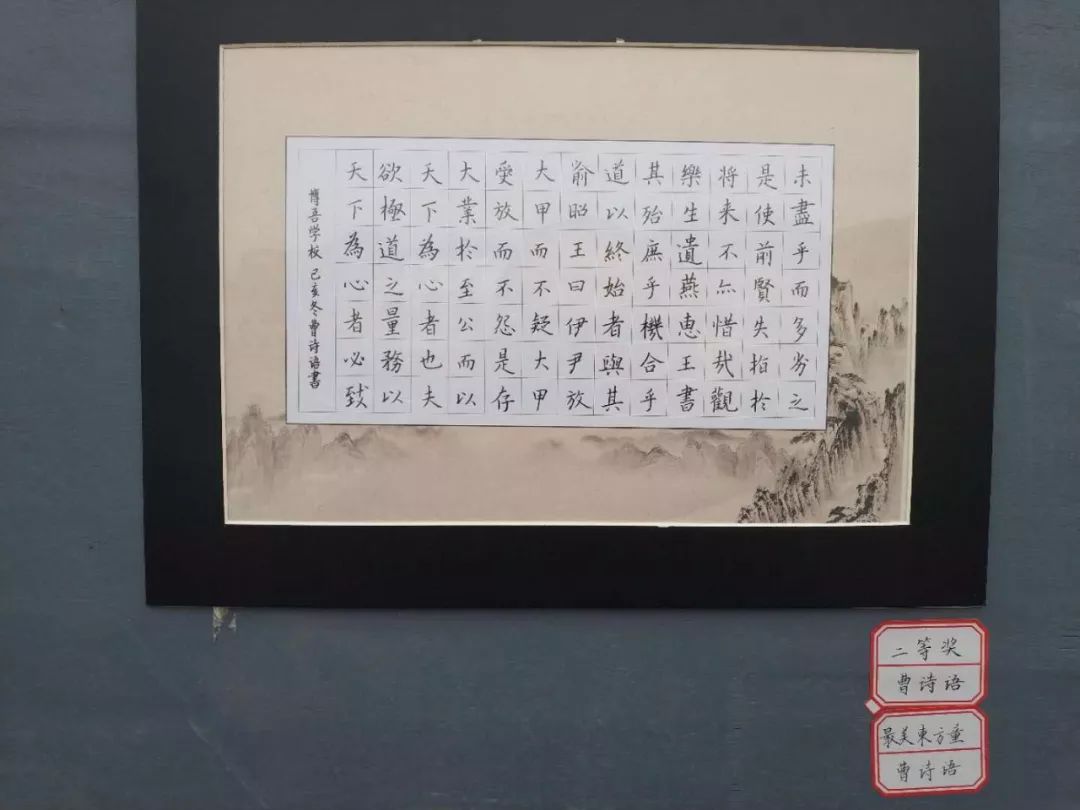 未盡乎而多劣之
是使前賢失指於
将来不亦惜哉觀
樂生遺燕惠王書
其殆庶乎機合乎
道以終始者與其
俞昭王曰伊尹放
大甲而不疑大甲
受放而不怨是存
大業於至公而以
天下為心者也夫
欲極道之量務以
天下為心者必致
博吾学校 己亥冬曹诗语書
二等奖
曹诗语
最美東方重
曹诗语